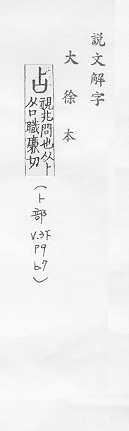 説文解字
大徐本
占 視兆問也从卜
从口職廉切
(卜部 V.3下 P9 b7)